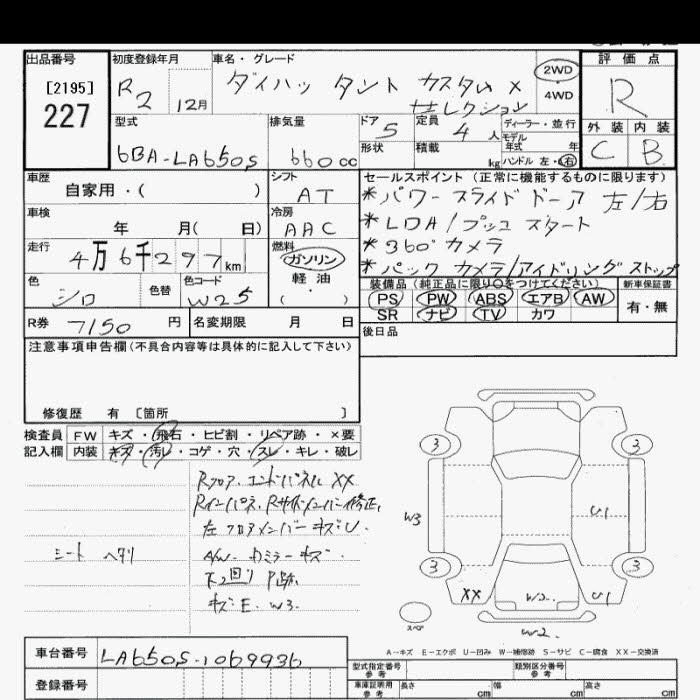 出品番号
[2195]
227
初度登録年月
R2 12月
車名・グレード
ダイハツ タント カスタム X
セレクション
2WD
4WD
評価点
R
外装 内装
C B
型式
6BA-LA650S
排気量
660cc
ドア
5
形状
定員
4人
積載
kg
ディーラー・並行
モデル
年式 年
ハンドル 左・右
車歴
自家用・( )
シフト
AT
車検
年 月( 日)
冷房
AAC
走行
4万6千297km
燃料
ガソリン
軽・油
( )
色
シロ
色替
色コード
W25
R券 7150円
名変期限 月 日
セールスポイント(正常に機能するものに限ります)
*パワースライドドーア 左/右
*LDA/プッシュスタート
*360°カメラ
*バックカメラ/アイドリングストップ
装備品(純正品に限り○をつけてください)
PS PW ABS エアB AW
SR ナビ TV カワ
新車保証書
有・無
後日品
注意事項申告欄(不具合内容等は具体的に記入して下さい)
修復歴 有 〔箇所 〕
検査員
記入欄
FW キズ・飛石・ヒビ割・リペア跡・×要
内装 キズ・汚レ・コゲ・穴・スレ・キレ・破レ
Rフロア、エンドパネル XX
Rインパネ、Rサイドメンバー修正、
左フロアメンバー キズU.
シート ヘタリ
A/W. ドミラーキズ.
下2回り P跡.
キズE. W3.
3 3
W3 U1
3 3
XX W2 U1
スペア
W2
A-キズ E-エクボ U-凹ミ W-補修跡 S-サビ C-腐食 XX-交換済
車台番号
LA650S-1069936
登録番号
型式指定番号
参考
類別区分番号
参考
車庫証明用
参考
長さ cm
幅 cm
高さ cm